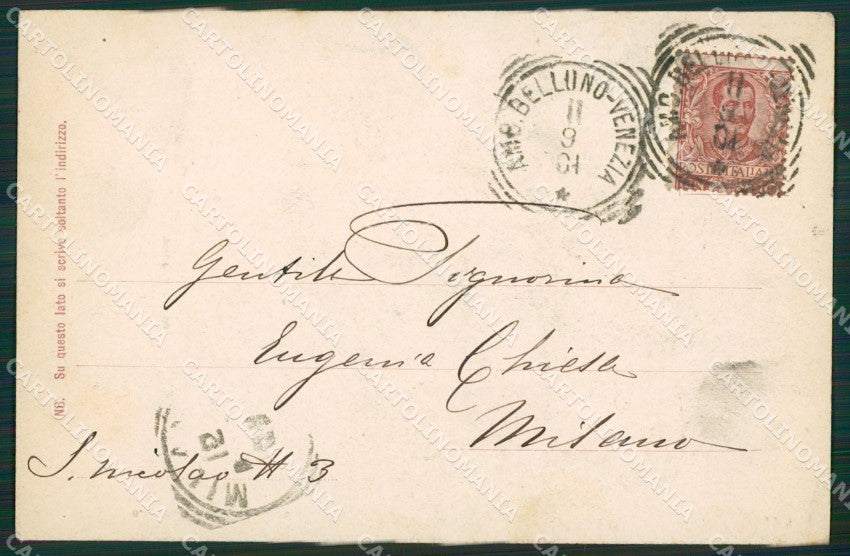 AMB. BELLUNO-VENEZIA
11
9
01
POSTE ITALIANE
(NB. Su questo lato si scrive soltanto l'indirizzo.
Gentile Signorina
Eugenia Chiesa
Milano
S. Nicolao # 3
12
CARTOLINOMANIA